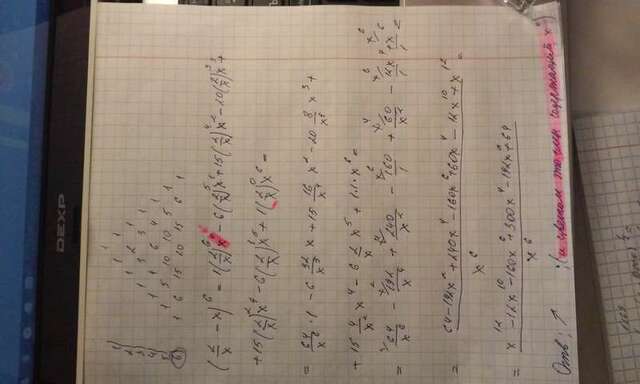 DEXP
1
1 1
1 2 1
1 3 3 1
1 4 6 4 1
1 5 10 10 5 1
1 6 15 20 15 6 1
(2/x − x)^6 = 1(2/x)^6 x^0 − 6(2/x)^5 x + 15(2/x)^4 x^2 − 20(2/x)^3 x^3 +
+ 15(2/x)^2 x^4 − 6(2/x) x^5 + 1(2/x)^0 x^6 =
= 64/x^6 · 1 − 6 32/x^5 x + 15 16/x^4 x^2 − 20 8/x^3 x^3 +
+ 15 4/x^2 x^4 − 6 2/x x^5 + 1·1·x^6 =
= 64/x^6 − 192/x^4 + 240/x^2 − 160/1 + 60 x^4/x^2 − 12x^4/1 + x^6/1 =
= 64 − 192x^2 + 240x^4 − 160x^6 + 60x^8 − 12x^10 + x^12 / x^6 =
= x^12 − 12x^10 − 160x^6 + 300x^4 − 192x^2 + 64 / x^6
Отв: ↑